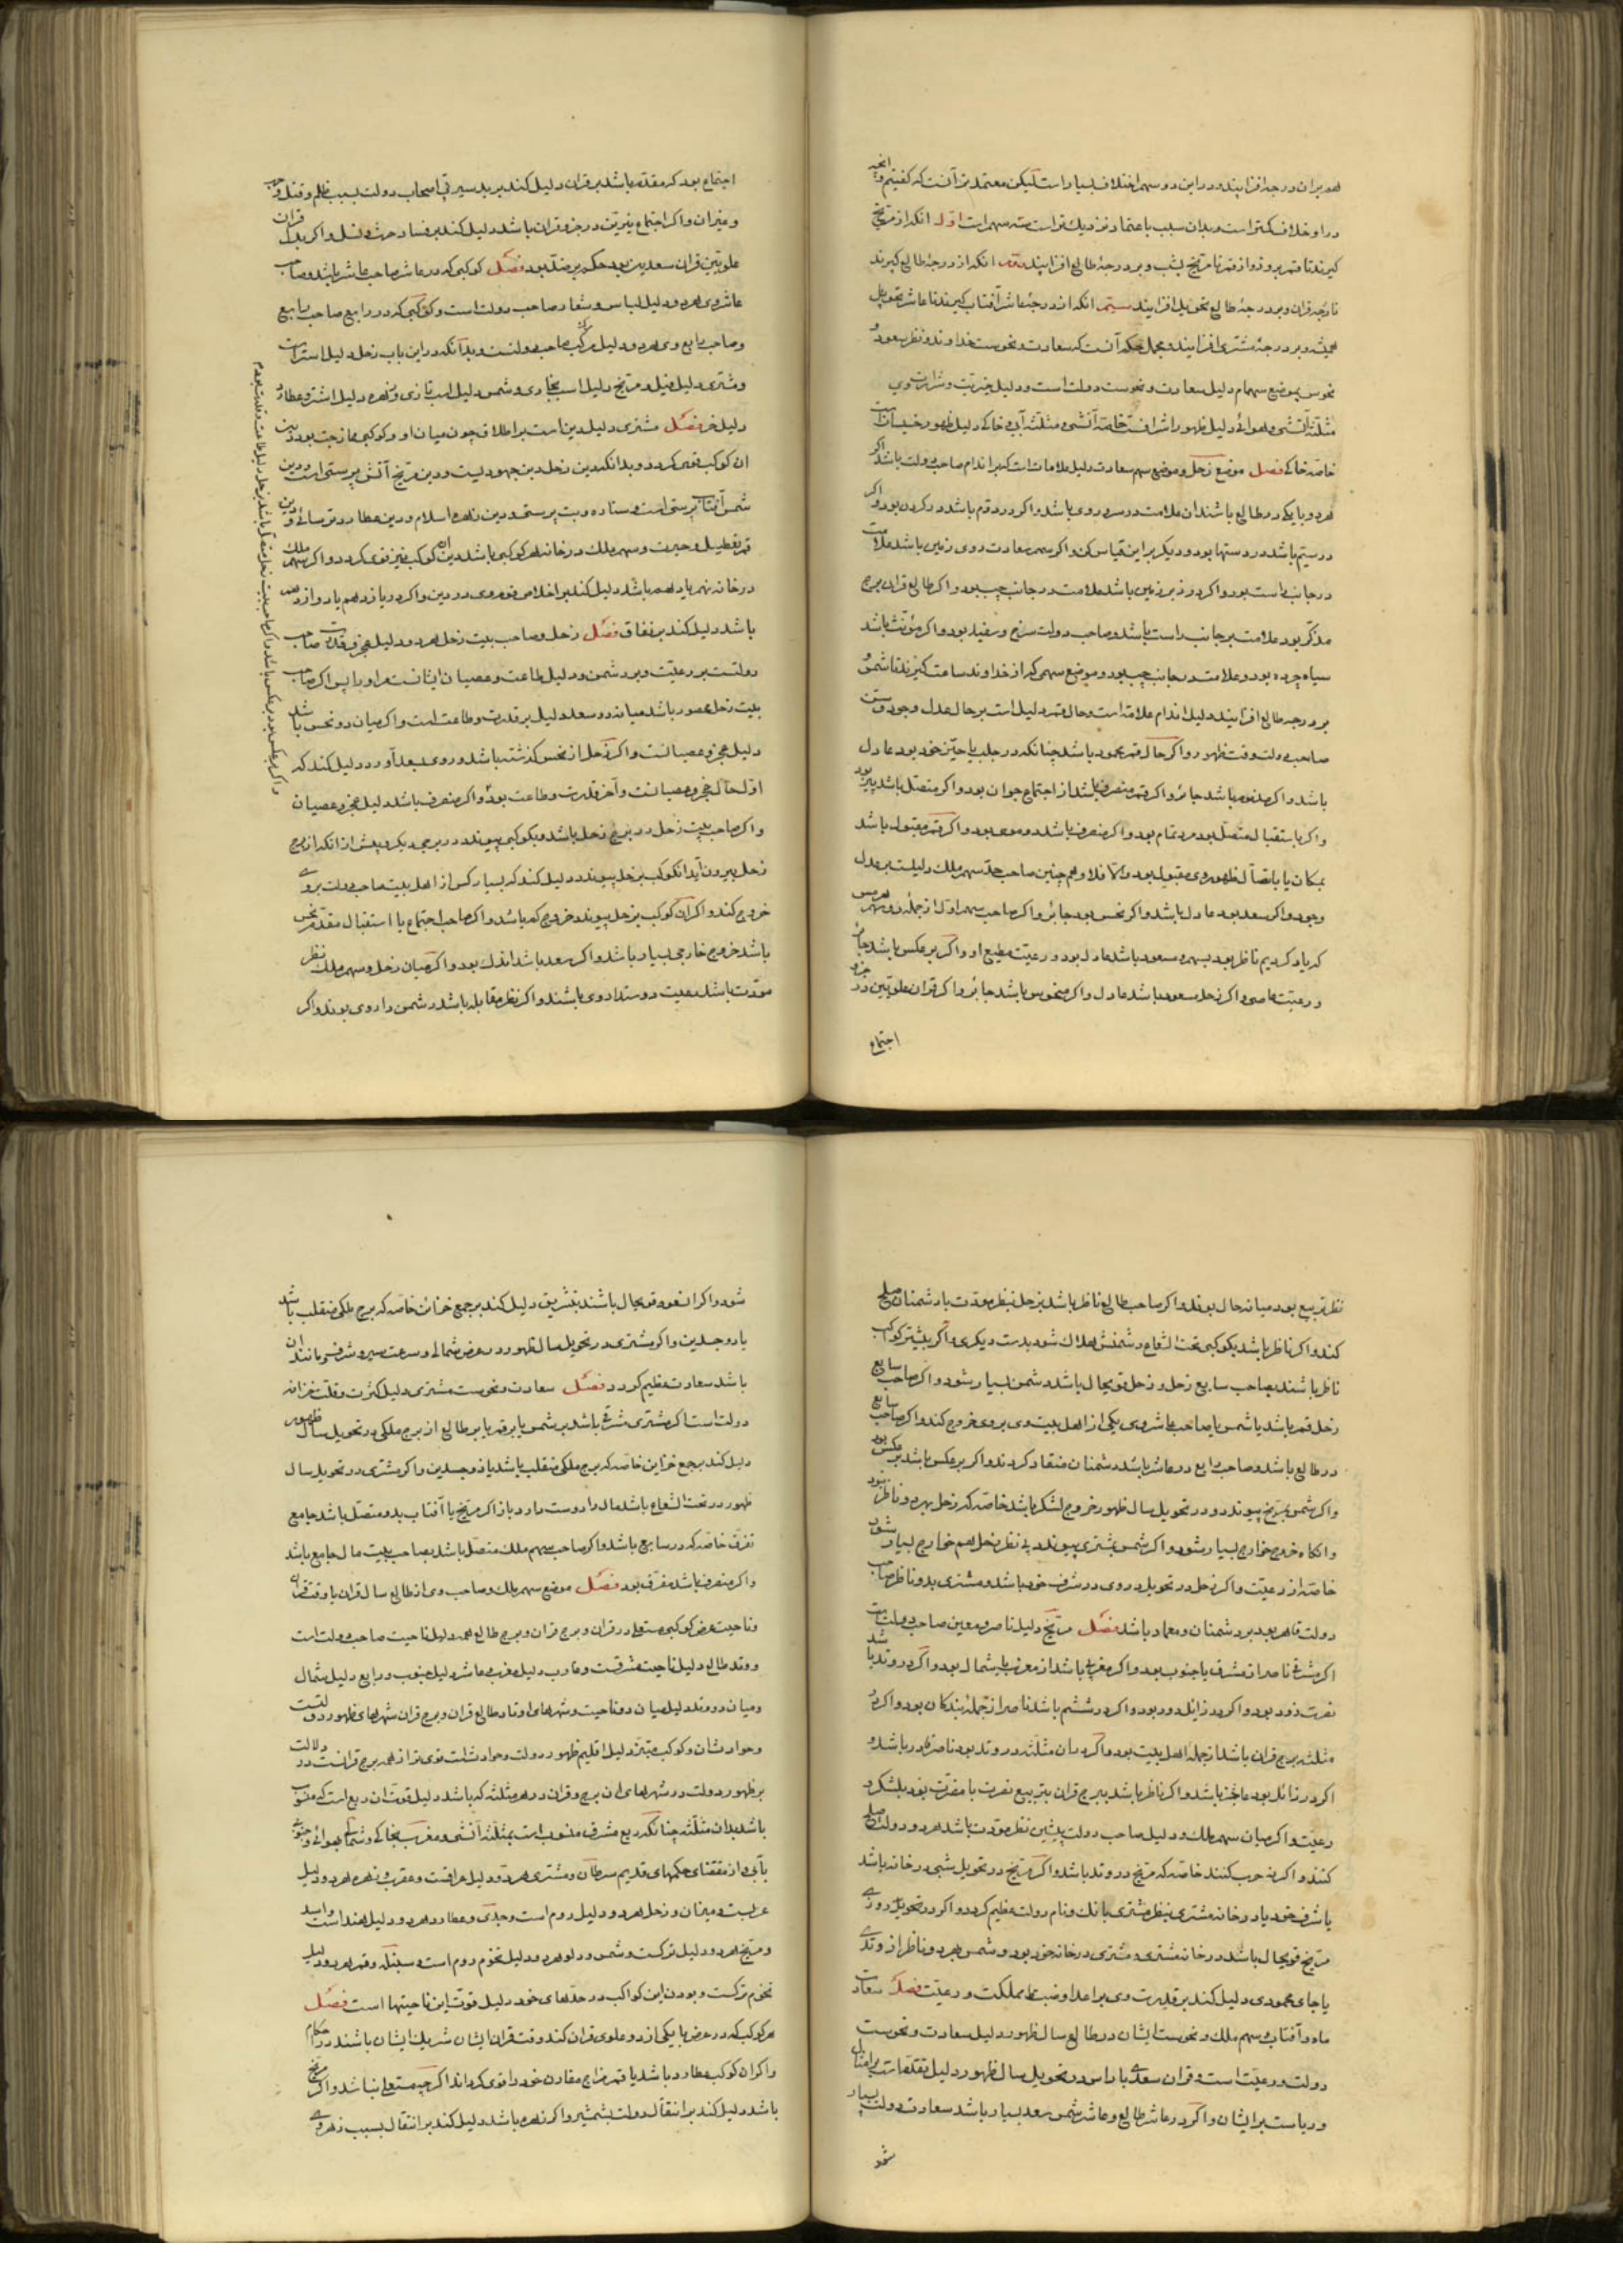 هر بران درجه افزایند و در این دو سهم اختلاف بسیار است لیکن معتمد تر آنست که کفتیم و آنچه
در او خلاف کمتر است و بدان سبب باعتماد نزدیک تر است سه سهم است اول انکه از مریخ
کیرند تا قمر بروز و از قمر تا مریخ بشب و بر درجهٔ طالع افزایند دوم انکه از درجهٔ طالع کیرند
تا درجه قران و بر درجهٔ طالع تحویل افزایند سیم انکه از درجهٔ عاشر آفتاب کیرند تا عاشر تحویل
همیشه و بر درجهٔ مشتری افزایند و مجمل حکم آنست که سعادت و نحوست خداوند و نظر سعود و
نحوس بموضع سهام دلیل سعادت و نحوست دولت است و دلیل خیریت و شرارت وی
مثلثه آتشی و هوائی دلیل ظهور اشرافست خاصه آتشی و مثلثه آبی و خاکی دلیل ظهور خسیسان است
خاصه خاکی فصل موضع زحل و موضع سهم سعادت دلیل علامات است که بر اندام صاحب دولت باشد اکر
هر دو یا یکی در طالع باشند ان علامت در سر و روی باشد و اکر در دوم باشد در کردن بود و اکر
در سیم باشد در دستها بود و دیکر بر این قیاس کن و اکر سهم سعادت روی زمین باشد علامت
در جانب راست بود و اکر در زیر زمین باشد علامت در جانب چپ بود و اکر طالع قران برج
مذکر بود علامت بر جانب راست باشد و صاحب دولت سرخ و سفید بود و اکر مؤنث باشد
سیاه چرده بود و علامت در جانب چپ بود و موضع سهمی که از خداوند ساعت کیرند تا شمس و
بر درجه طالع افزایند دلیل اندام علامت است و حال قمر دلیل است بر حال عدل و جود و سن
صاحب دولت وقت ظهور و اکر حال قمر محمود باشد چنانکه در جلب یا حیز خود بود عادل
باشد و اکر مذموم باشد جائر و اکر قمر منصرف باشد از اجتماع جوان بود و اکر متصل باشد پیر بود
و اکر باستقبال متصل بود مرد تمام بود و اکر منصرف باشد دو موی بود و اکر قمر مقبول باشد
بمکان یا باتصال ظهور وی مقبول بود و الا فلا و هم چنین صاحب حد سهم ملک دلیلست بر عدل
و جود و اکر سعد بود عادل باشد و اکر نحس بود جائر و اکر صاحب سهم اول از جمله دو سهم هرمس
که یاد کردیم ناظر بود بسهم و مسعود باشد عادل بود و رعیت مطیع او و اکر بر عکس باشد جائر
و رعیت عاصی و اکر زحل مسعود باشد عادل و اکر منحوس باشد جائر و اکر قران علویین در جزو
اجتماع
اجتماع بود که مقدم باشد بر قران دلیل کند بر بد سیرتی اصحاب دولت بسبب ظلم و قتل و حرب
و غیر ان و اکر اجتماع نیرین در جزو قران باشد دلیل کند بر فساد حرث و نسل و اکر بدل قران
علویین قران سعدین بود حکم بر ضد بود فصل کوکبی که در عاشر صاحب عاشر باشد و صاحب
عاشر وی هر دو دلیل لباس و شعار صاحب دولت است و کوکبی که در رابع صاحب رابع
و صاحب رابع وی هر دو دلیل مرکب صاحب دولتست و بدانکه در این باب زحل دلیل استر است
و مشتری دلیل فیل و مریخ دلیل اسب بخاری و شمس دلیل اسب تازی و زهره دلیل اشتر و عطارد
دلیل خر فصل مشتری دلیل دین است بر اطلاق چون میان او و کوکبی ممازجت بود دین
ان کوکب قوی کردد و بدانکه دین زحل دین جهودیست و دین مریخ آتش پرستی است و دین
شمس آفتاب پرستی است و ستاره و بت پرستی و دین زهره اسلام و دین عطارد ترسائی و دین
قمر تعطیل و حیرت و سهم ملک در خانه هر کوکبی باشد دین ان کوکب نیز قوی کردد و اکر سهم ملک
در خانه نهم یا دهم باشد دلیل کند بر اخلاص قوم وی در دین و اکر در یازدهم یا دوازدهم
باشد دلیل کند بر نفاق فصل زحل و صاحب بیت زحل هر دو دلیل عجز و قدرت صاحب
دولتست بر رعیت و بر دشمن و دلیل طاعت و عصیان ایشانست مر او را پس اکر صاحب
بیت زحل محصور باشد میانه دو سعد دلیل بر قدرت و طاعت است و اکر میان دو نحس باشد
دلیل عجز و عصیانست و اکر زحل از نحس کذشته باشد و روی بسعد آورد دلیل کند که
اول حال عجز و عصیانست و آخر قدرت و طاعت بود و اکر منصرف باشد دلیل عجز و عصیان
و اکر صاحب بیت زحل در برج زحل باشد و بکوکبی پیوندد در برجی دیکر و پیش از انکه از برج
زحل بیرون آید انکوکب بزحل پیوندد دلیل کند که بسیار کس از اهل بیت صاحب دولت بر وی
خروج کند و اکر ان کوکب بزحل پیوندد خروج کم باشد و اکر صاحب اجتماع یا استقبال مقدم نحس
باشد خروج خارجی بسیار باشد و اکر سعد باشد اندک بود و اکر میان زحل و سهم ملک نظر
مودت باشد رعیت دوستدار وی باشند و اکر نظر مقابله باشد دشمن دار وی بوند و اکر
نظر تربیع بود میانه حال بوند و اکر صاحب طالع ناظر باشد بزحل بنظر مودت با دشمنان صلح
کند و اکر ناظر باشد بکوکبی تحت الشعاع دشمنش هلاک شود بدست دیکری و اکر بیشتر کواکب
ناظر باشند بصاحب سابع زحل و زحل قویحال باشد دشمن بسیار شود و اکر صاحب سابع
زحل قمر باشد یا شمس یا صاحب عاشر وی یکی از اهل بیت وی بر وی خروج کند و اکر صاحب سابع
در طالع باشد و صاحب رابع در عاشر باشد دشمنان منقاد کردند و اکر بر عکس باشد بر عکس بود
و اکر شمس بمریخ پیوندد و در تحویل سال ظهور خروج لشکر باشد خاصه که زحل بهر دو ناظر بود
و انکاه خروج خوارج بسیار شود و اکر شمس بمشتری پیوندد بی نظر زحل هم خوارج بسیار شود
خاصه از رعیت و اکر زحل در تحویل در وی در شرف خود باشد و مشتری بدو ناظر صاحب
دولت قاهر بود بر دشمنان و معمار باشد فصل مریخ دلیل ناصر و معین صاحب دولت است
اکر مشرقی ناصر از مشرق یا جنوب بود و اکر مغربی باشد از مغرب یا شمال بود و اکر در وتد باشد
نصرت زود بود و اکر در زائل دور بود و اکر در ششم باشد ناصر از جمله بندکان بود و اکر در
مثلثه برج قران باشد از جمله اهل بیت بود و اکر در ان مثلثه در وتد بود ناصر قادر باشد و
اکر در زائل بود عاجز باشد و اکر ناظر باشد ببرج قران بتربیع نصرت با مضرت بود بلشکر و
رعیت و اکر میان سهم ملک و دلیل صاحب دولت پیشین نظر مودت باشد هر دو دولت صلح
کنند و اکر نه حرب کنند خاصه که مریخ در وتد باشد و اکر مریخ در تحویل شبی در خانه باشد
یا شرف خود یا در خانه مشتری بنظر مشتری بانک و نام دولت عظیم کردد و اکر در تحویل روزی
مریخ قویحال باشد در خانه مشتری و مشتری در خانه خود بود و شمس بهر دو ناظر از وتدی
یا جای محمودی دلیل کند بر قدرت وی بر اعدا و ضبط مملکت و رعیت فصل سعادت
ماه و آفتاب و سهم ملک و نحوست ایشان در طالع سال ظهور دلیل سعادت و نحوست
دولت و رعیت است و قران سعدی با راس در تحویل سال ظهور دلیل
و ریاست بر ایشان و اکر در عاشر طالع و عاشر شمس سعد بسیار باشد سعادت دولت بسیار
شود
شود و اکر ان سعود قویحال باشند بتشریق دلیل کند بر جمع خزائن خاصه که برج ملکی منقلب باشد
یا ذو جسدین و اکر مشتری در تحویل سال ظهور در عرض شمالی و سرعت سیر و شرف و مانند ان
باشد سعادت عظیم کردد فصل سعادت و نحوست مشتری دلیل کثرت و قلت خزانه
دولت است اکر مشتری مشرقی باشد بر شمس یا بر قمر یا بر طالع از برج ملکی در تحویل سال ظهور
دلیل کند بر جمع خزاین خاصه که برج ملکی منقلب باشد یا ذو جسدین و اکر مشتری در تحویل سال
ظهور در تحت الشعاع باشد مال را دوست دارد باز اکر مریخ یا آفتاب بدو متصل باشد جامع
تفرق خاصه که در سابع باشد و اکر صاحب سهم ملک متصل باشد بصاحب بیت مال جامع باشد
و اکر منصرف باشد مفرق بود فصل موضع سهم ملک و صاحب وی از طالع سال قران یا وقت قران
و ناحیت عرض کوکبی مستعلی در قران و برج قران و برج طالع همه دلیل ناحیت صاحب دولت است
و وتد طالع دلیل ناحیت مشرقست و غارب دلیل مغرب و عاشر دلیل جنوب و رابع دلیل شمال
و میان دو وتد دلیل میان دو ناحیت و شهرهای اوتاد طالع قران و برج قران شهرهای ظهور دولتست
و حوادثان و کوکب مبتز دلیل اقلیم ظهور دولت و حوادث است قوی تر از همه برج قرانست در دلالت
بر ظهور دولت در شهرهای ان برج و قران در هر مثلثه که باشد دلیل قوت ان ربع است که منسوب
باشد بدان مثلثه چنانکه ربع مشرق منسوب است بمثلثه آتشی و مغرب بخاکی و شمال بهوائی و جنوب
بآبی و از مقتضای حکمهای قدیم سرطان و مشتری هر دو دلیل عراقست و عقرب و زهره هر دو دلیل
عربست و میزان و زحل هر دو دلیل روم است و جدی و عطارد هر دو دلیل هند است و اسد
و مریخ هر دو دلیل ترکست و شمس و دلو هر دو دلیل تخوم روم است و سنبله و قمر هر دو دلیل
تخوم ترکست و بودن این کواکب در حدهای خود دلیل قوت این ناحیتها است فصل
هر کوکب که در عرض با یکی از دو علوی قران کند وقت قران ایشان شریک ایشان باشند در احکام
و اکر ان کوکب عطارد باشد یا قمر مزاج مقارن خود را قوی کرداند اکر چه مستعلی نباشد و اکر مریخ
باشد دلیل کند بر انتقال دولت بشمشیر و اکر زهره باشد دلیل کند بر انتقال بسبب زهره